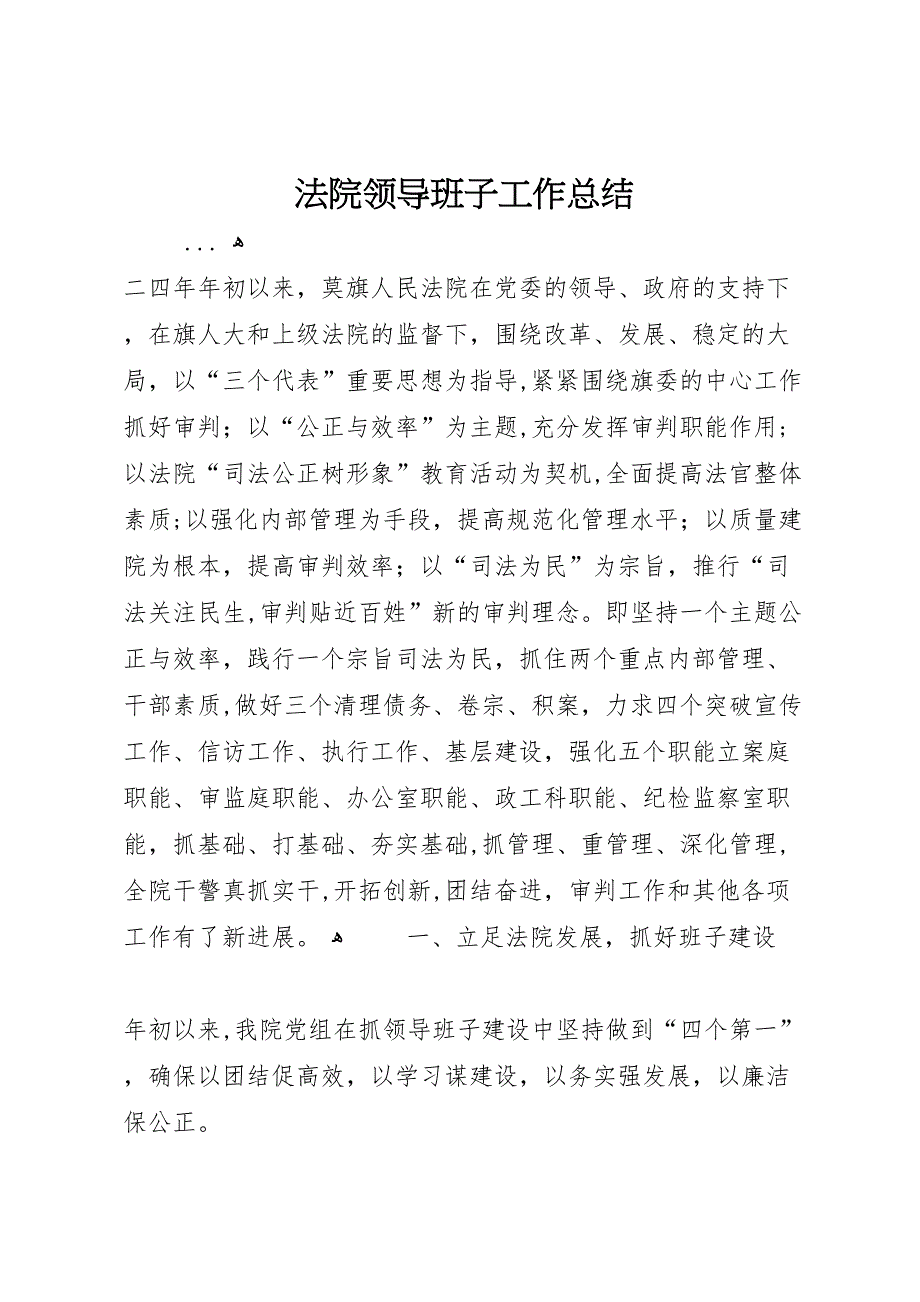 法院领导班子工作总结
... ﻫ
二四年年初以来，莫旗人民法院在党委的领导、政府的支持下
，在旗人大和上级法院的监督下，围绕改革、发展、稳定的大
局，以“三个代表”重要思想为指导,紧紧围绕旗委的中心工作
抓好审判；以“公正与效率”为主题,充分发挥审判职能作用;
以法院“司法公正树形象”教育活动为契机,全面提高法官整体
素质;以强化内部管理为手段，提高规范化管理水平；以质量建
院为根本，提高审判效率；以“司法为民”为宗旨，推行“司
法关注民生,审判贴近百姓”新的审判理念。即坚持一个主题公
正与效率，践行一个宗旨司法为民，抓住两个重点内部管理、
干部素质,做好三个清理债务、卷宗、积案，力求四个突破宣传
工作、信访工作、执行工作、基层建设，强化五个职能立案庭
职能、审监庭职能、办公室职能、政工科职能、纪检监察室职
能，抓基础、打基础、夯实基础,抓管理、重管理、深化管理,
全院干警真抓实干,开拓创新,团结奋进，审判工作和其他各项
工作有了新进展。 ﻫ 一、立足法院发展，抓好班子建设
年初以来,我院党组在抓领导班子建设中坚持做到“四个第一”
，确保以团结促高效，以学习谋建设，以务实强发展，以廉洁
保公正。